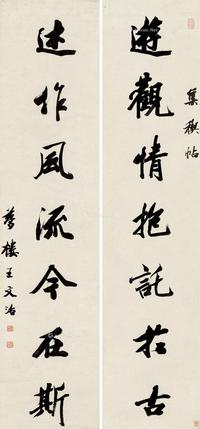 集禊帖
遊觀情抱託於古
述作風流今在斯
夢樓王文治